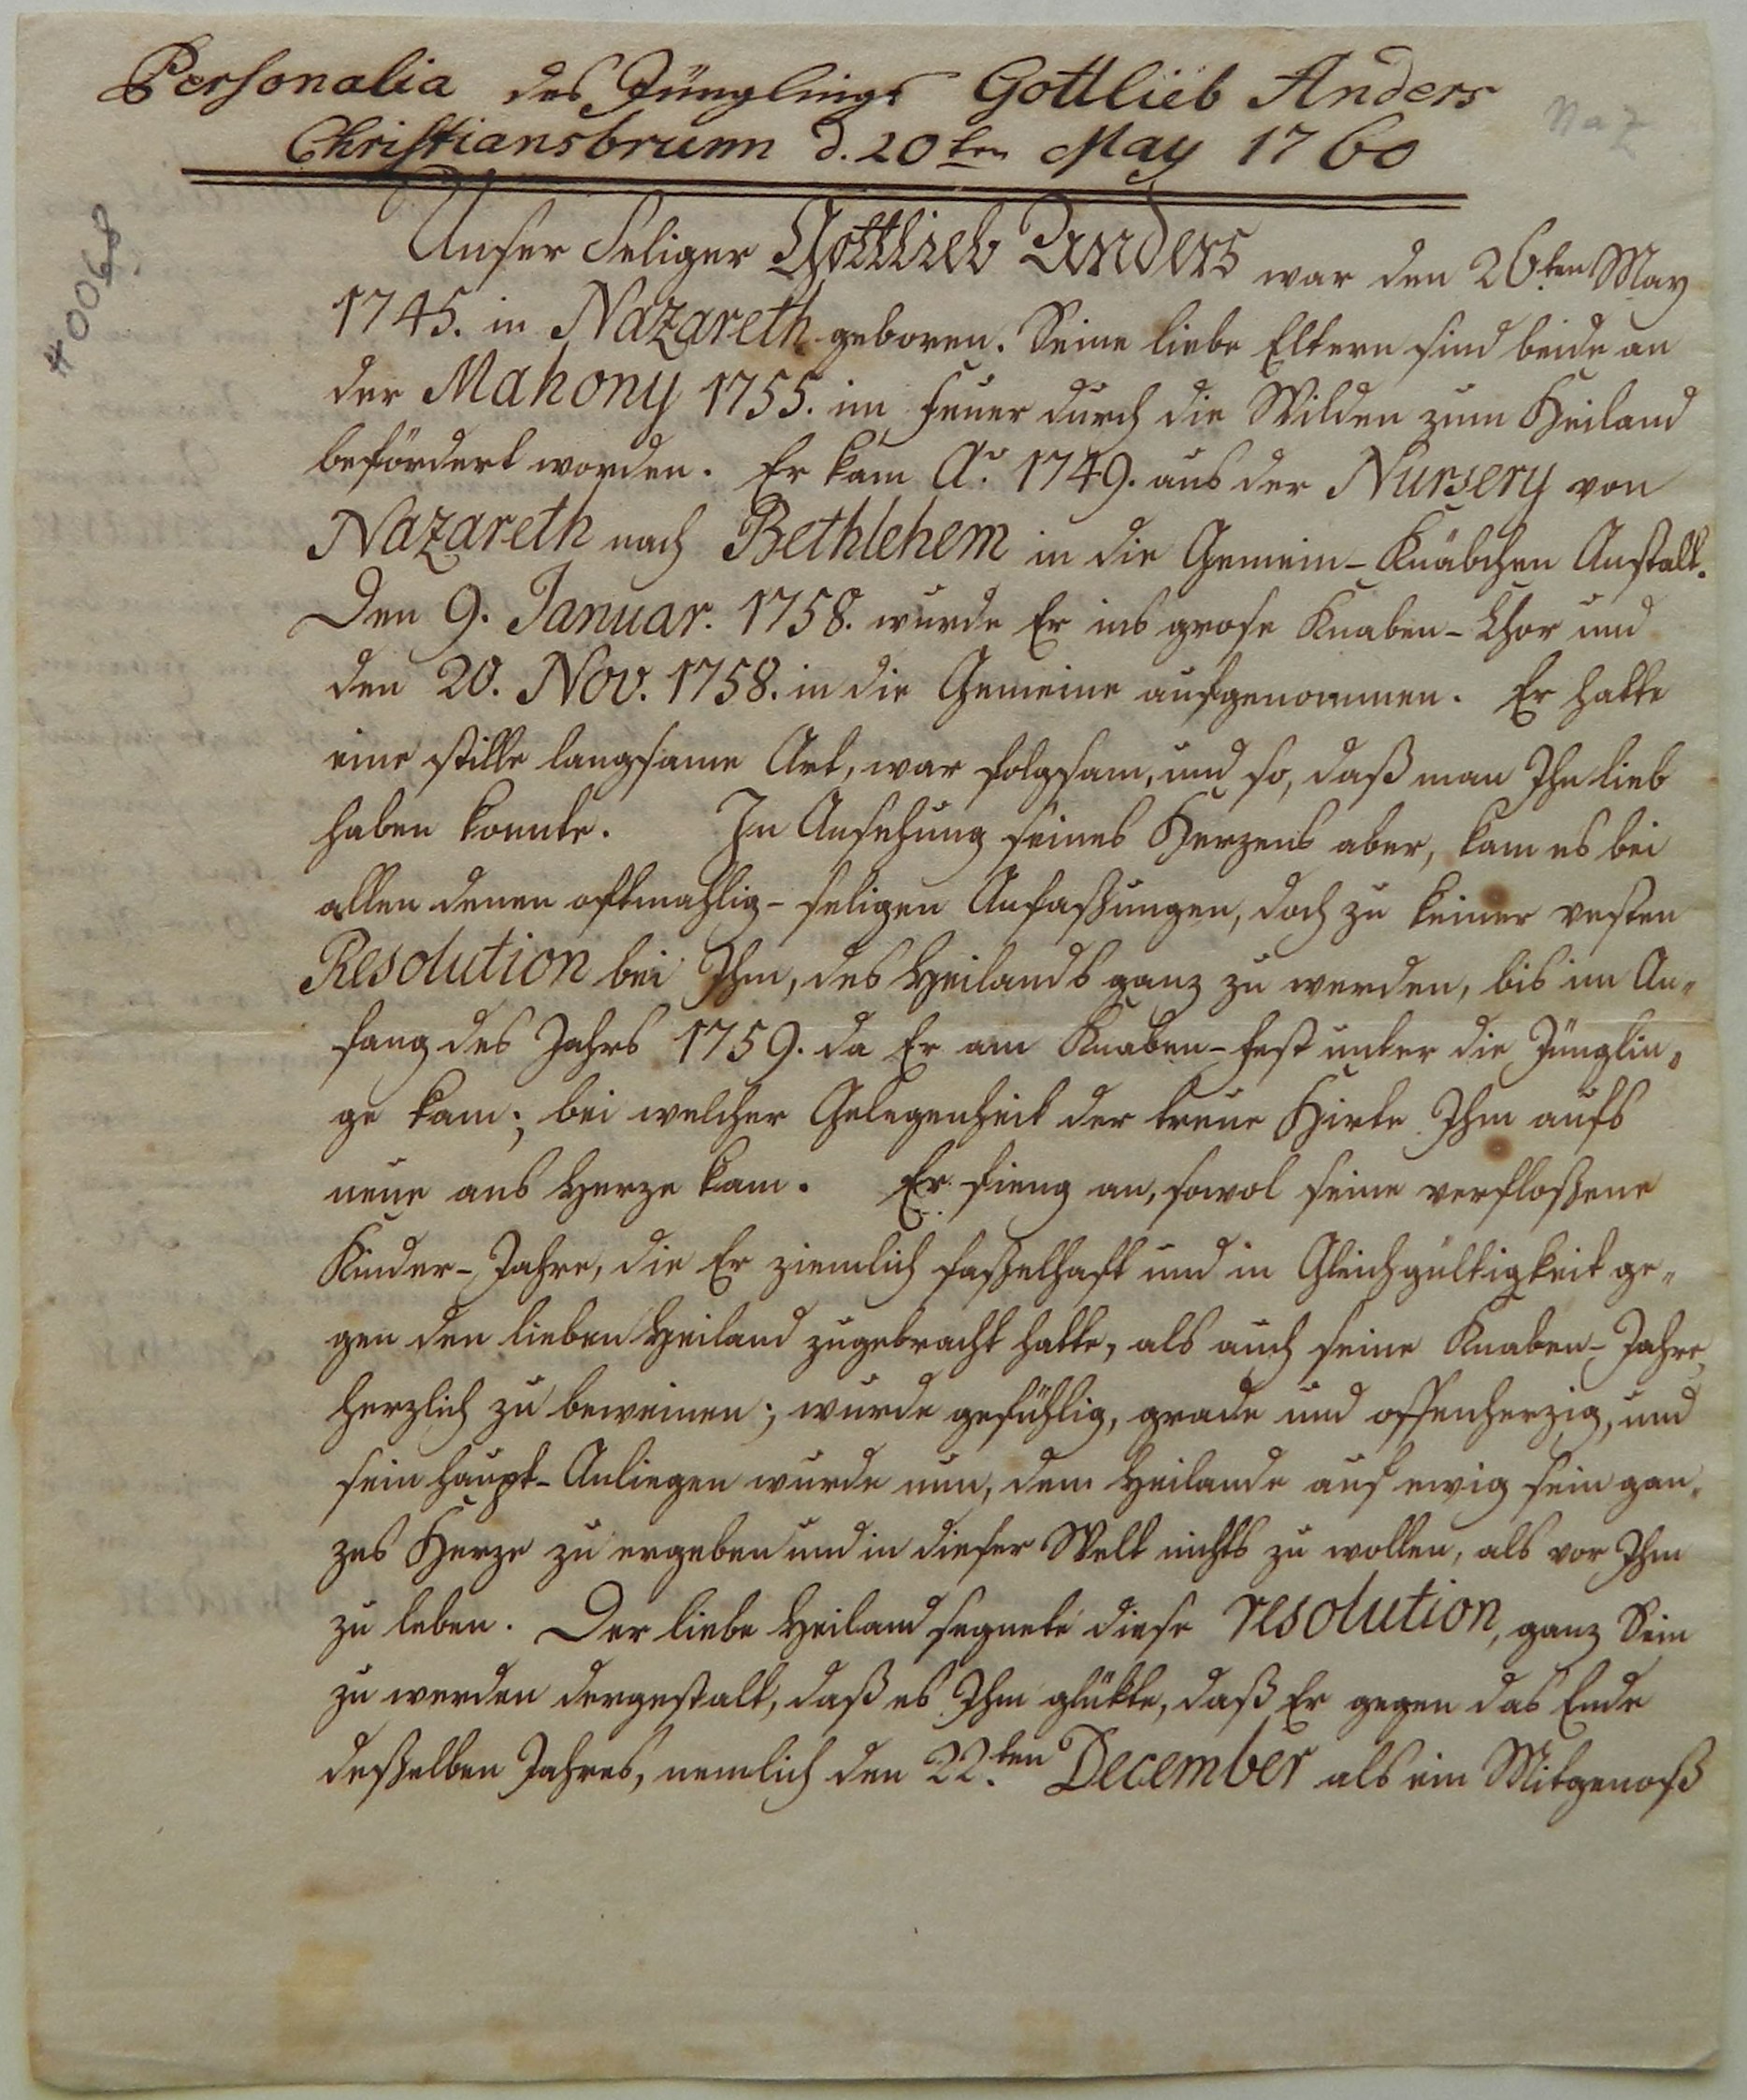 Personalia des Jünglings Gottlieb Anders
Christiansbrunn d. 20ten May 1760
Naz
40068
Unser Seliger Gottlieb Anders war den 26ten May
1745. in Nazareth geboren. Seine liebe Eltern sind beide an
der Mahony 1755. im Feuer durch die Wilden zum Heiland
befördert worden. Er kam Ao. 1749. aus der Nursery von
Nazareth nach Bethlehem in die Gemein-Knäbchen Anstalt.
Den 9. Januar. 1758. wurde Er ins grose Knaben-Chor und
den 20. Nov. 1758. in die Gemeine aufgenommen. Er hatte
eine stille langsame Art, war folgsam, und so, daß man Ihn lieb
haben konnte. In Ansehung seines Herzens aber, kam es bei
allen denen oftmahlig-seligen Anfaßungen, doch zu keiner vesten
Resolution bei Ihm, des Heilands ganz zu werden, bis im An„
fang des Jahrs 1759. da Er am Knaben-Fest unter die Jünglin„
ge kam; bei welcher Gelegenheit der treue Hirte Ihm aufs
neue ans Herze kam. Er fieng an, sowol seine verfloßene
Kinder-Jahre, die Er ziemlich faßelhaft und in Gleichgültigkeit ge„
gen den lieben Heiland zugebracht hatte, als auch seine Knaben-Jahre,
herzlich zu beweinen; wurde gefühlig, grade und offenherzig, und
sein Haupt-Anliegen wurde nun, dem Heilande auf ewig sein gan„
zes Herze zu ergeben und in dieser Welt nichts zu wollen, als vor Ihm
zu leben. Der liebe Heiland segnete diese resolution, ganz Sein
zu werden dergestalt, daß es Ihm glükte, daß Er gegen das Ende
deßelben Jahres, nemlich den 22.ten December als ein Mitgenoß